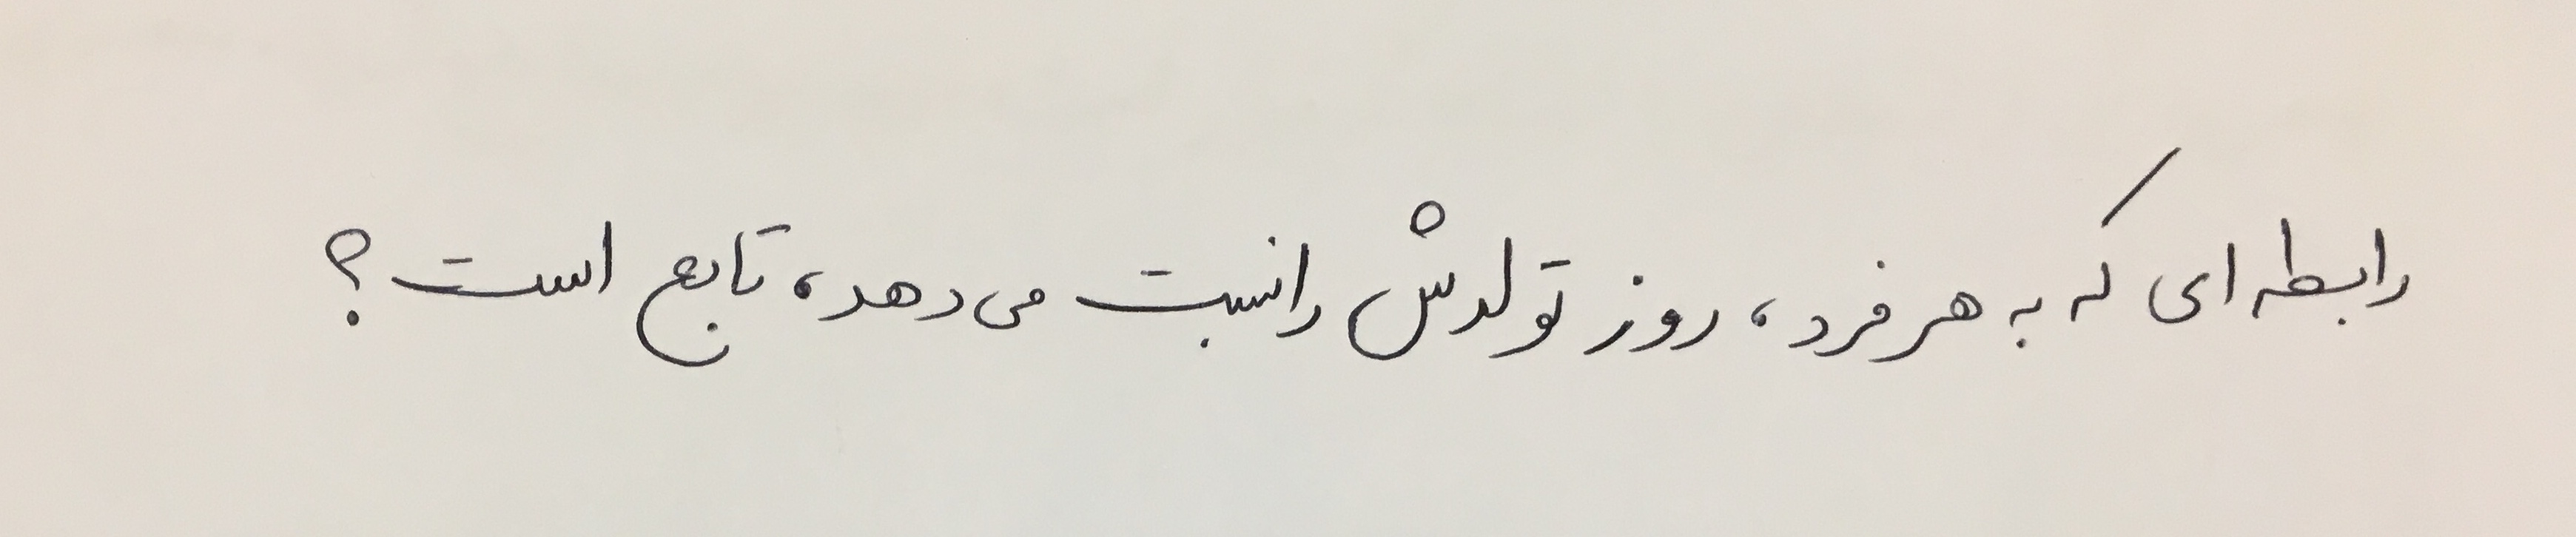 رابطه ای که به هر فرد، روز تولدش را نسبت می دهد، تابع است؟